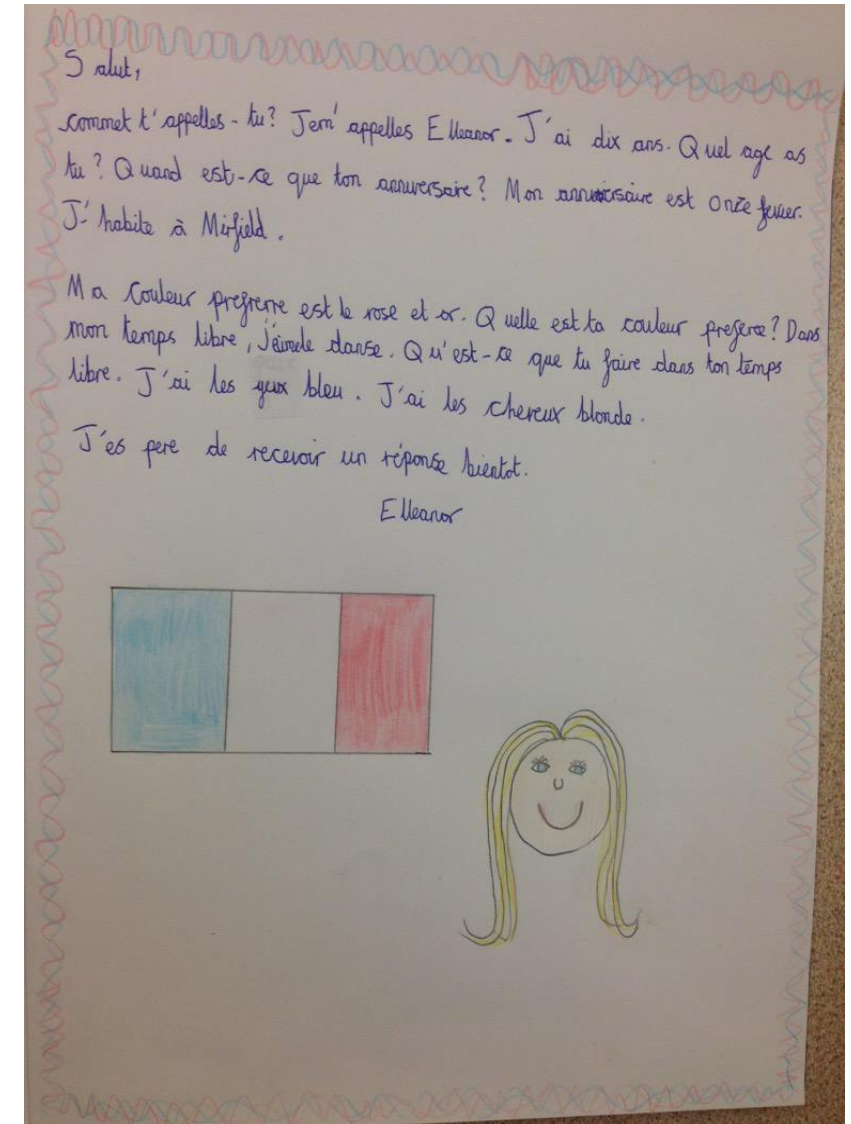 Salut,
commet t'appelles-tu? Jem'appelles Elleanor. J'ai dix ans. Quel age as
tu? Quand est-ce que ton anniversaire? Mon anniversaire est onze fevier.
J'habite à Mirfield.
Ma couleur prefrerre est le rose et or. Quelle est ta couleur preferce? Dans
mon temps libre, J'aimele danse. Qu'est-ce que tu faire dans ton temps
libre. J'ai les yeux bleu. J'ai les chereux blonde.
J'es pere de recevoir un réponse bientot.
Elleanor